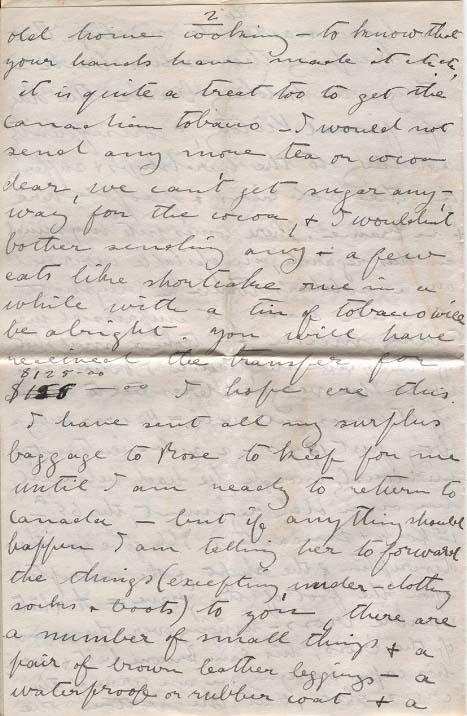 2
old home cooking – to know that
your hands have made it etc,
it is quite a treat too to get the
Canadian tobacco – I would not
send any more tea or cocoa
dear, we can't get sugar any-
way for the cocoa, & I wouldn't
bother sending any – a few
eats like shortcake once in a
while with a tin of tobacco will
be alright. You will have
received the transfer for
$125-00
$1 – 00 I hope ere this.
I have sent all my surplus
baggage to Rose to keep for me
until I am ready to return to
Canada – but if anything should
happen I am telling her to forward
the things (excepting under-clothing
socks & boots) to you, there are
a number of small things & a
pair of brown leather leggings – a
waterproof or rubber coat & a